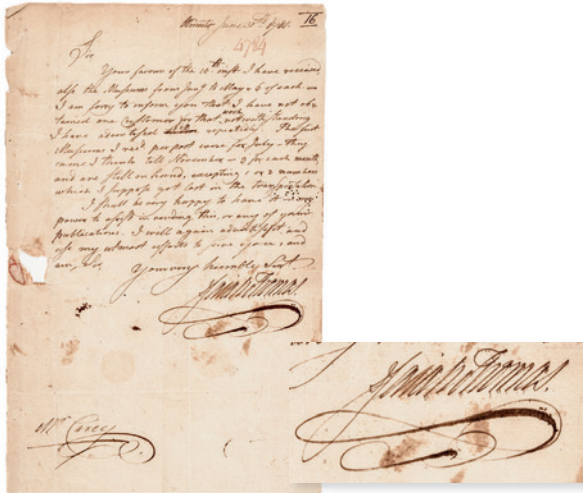 16
4784
Sir
Your favour of the 12th inst. I have received
also the Museums from Jany to May – 6 of each. –
I am sorry to inform you that I have not ob
tained one Customer for that work notwithstanding
I have advertised repeatedly. The first
Museums I recd. per post were for July – they
came I think till November – 3 for each month,
and are still on hand, excepting 1 or 2 numbers
which I suppose got lost in the transportation
I shall be very happy to have it in my
power to assist in vending this, or any of your
publications. I will again advertise it and
use my utmost efforts to serve you, and
am, Sir,
Your very humble Servt.
Isaiah Thomas.
Mr. Carey
Isaiah Thomas.